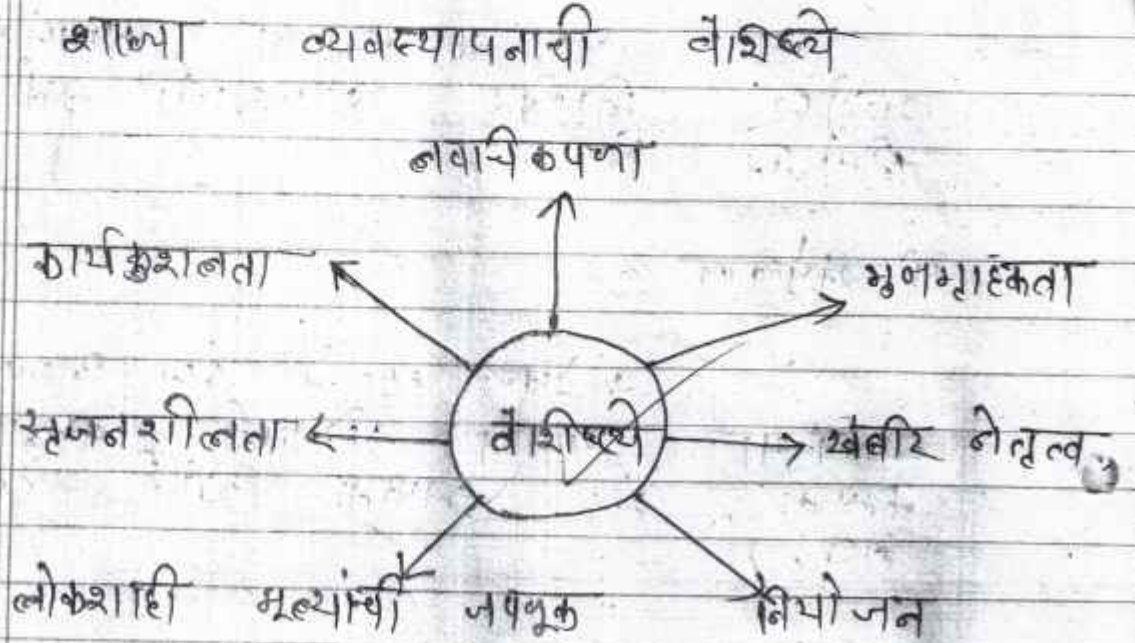 शाळा व्यवस्थापनाची वैशिष्ट्ये
नाविकपणा
कार्यकुशलता
गुणग्राहकता
सृजनशीलता
वैशिष्ट्ये
खंबीर नेतृत्व
लोकशाही मूल्यांची जपणूक
नियोजन